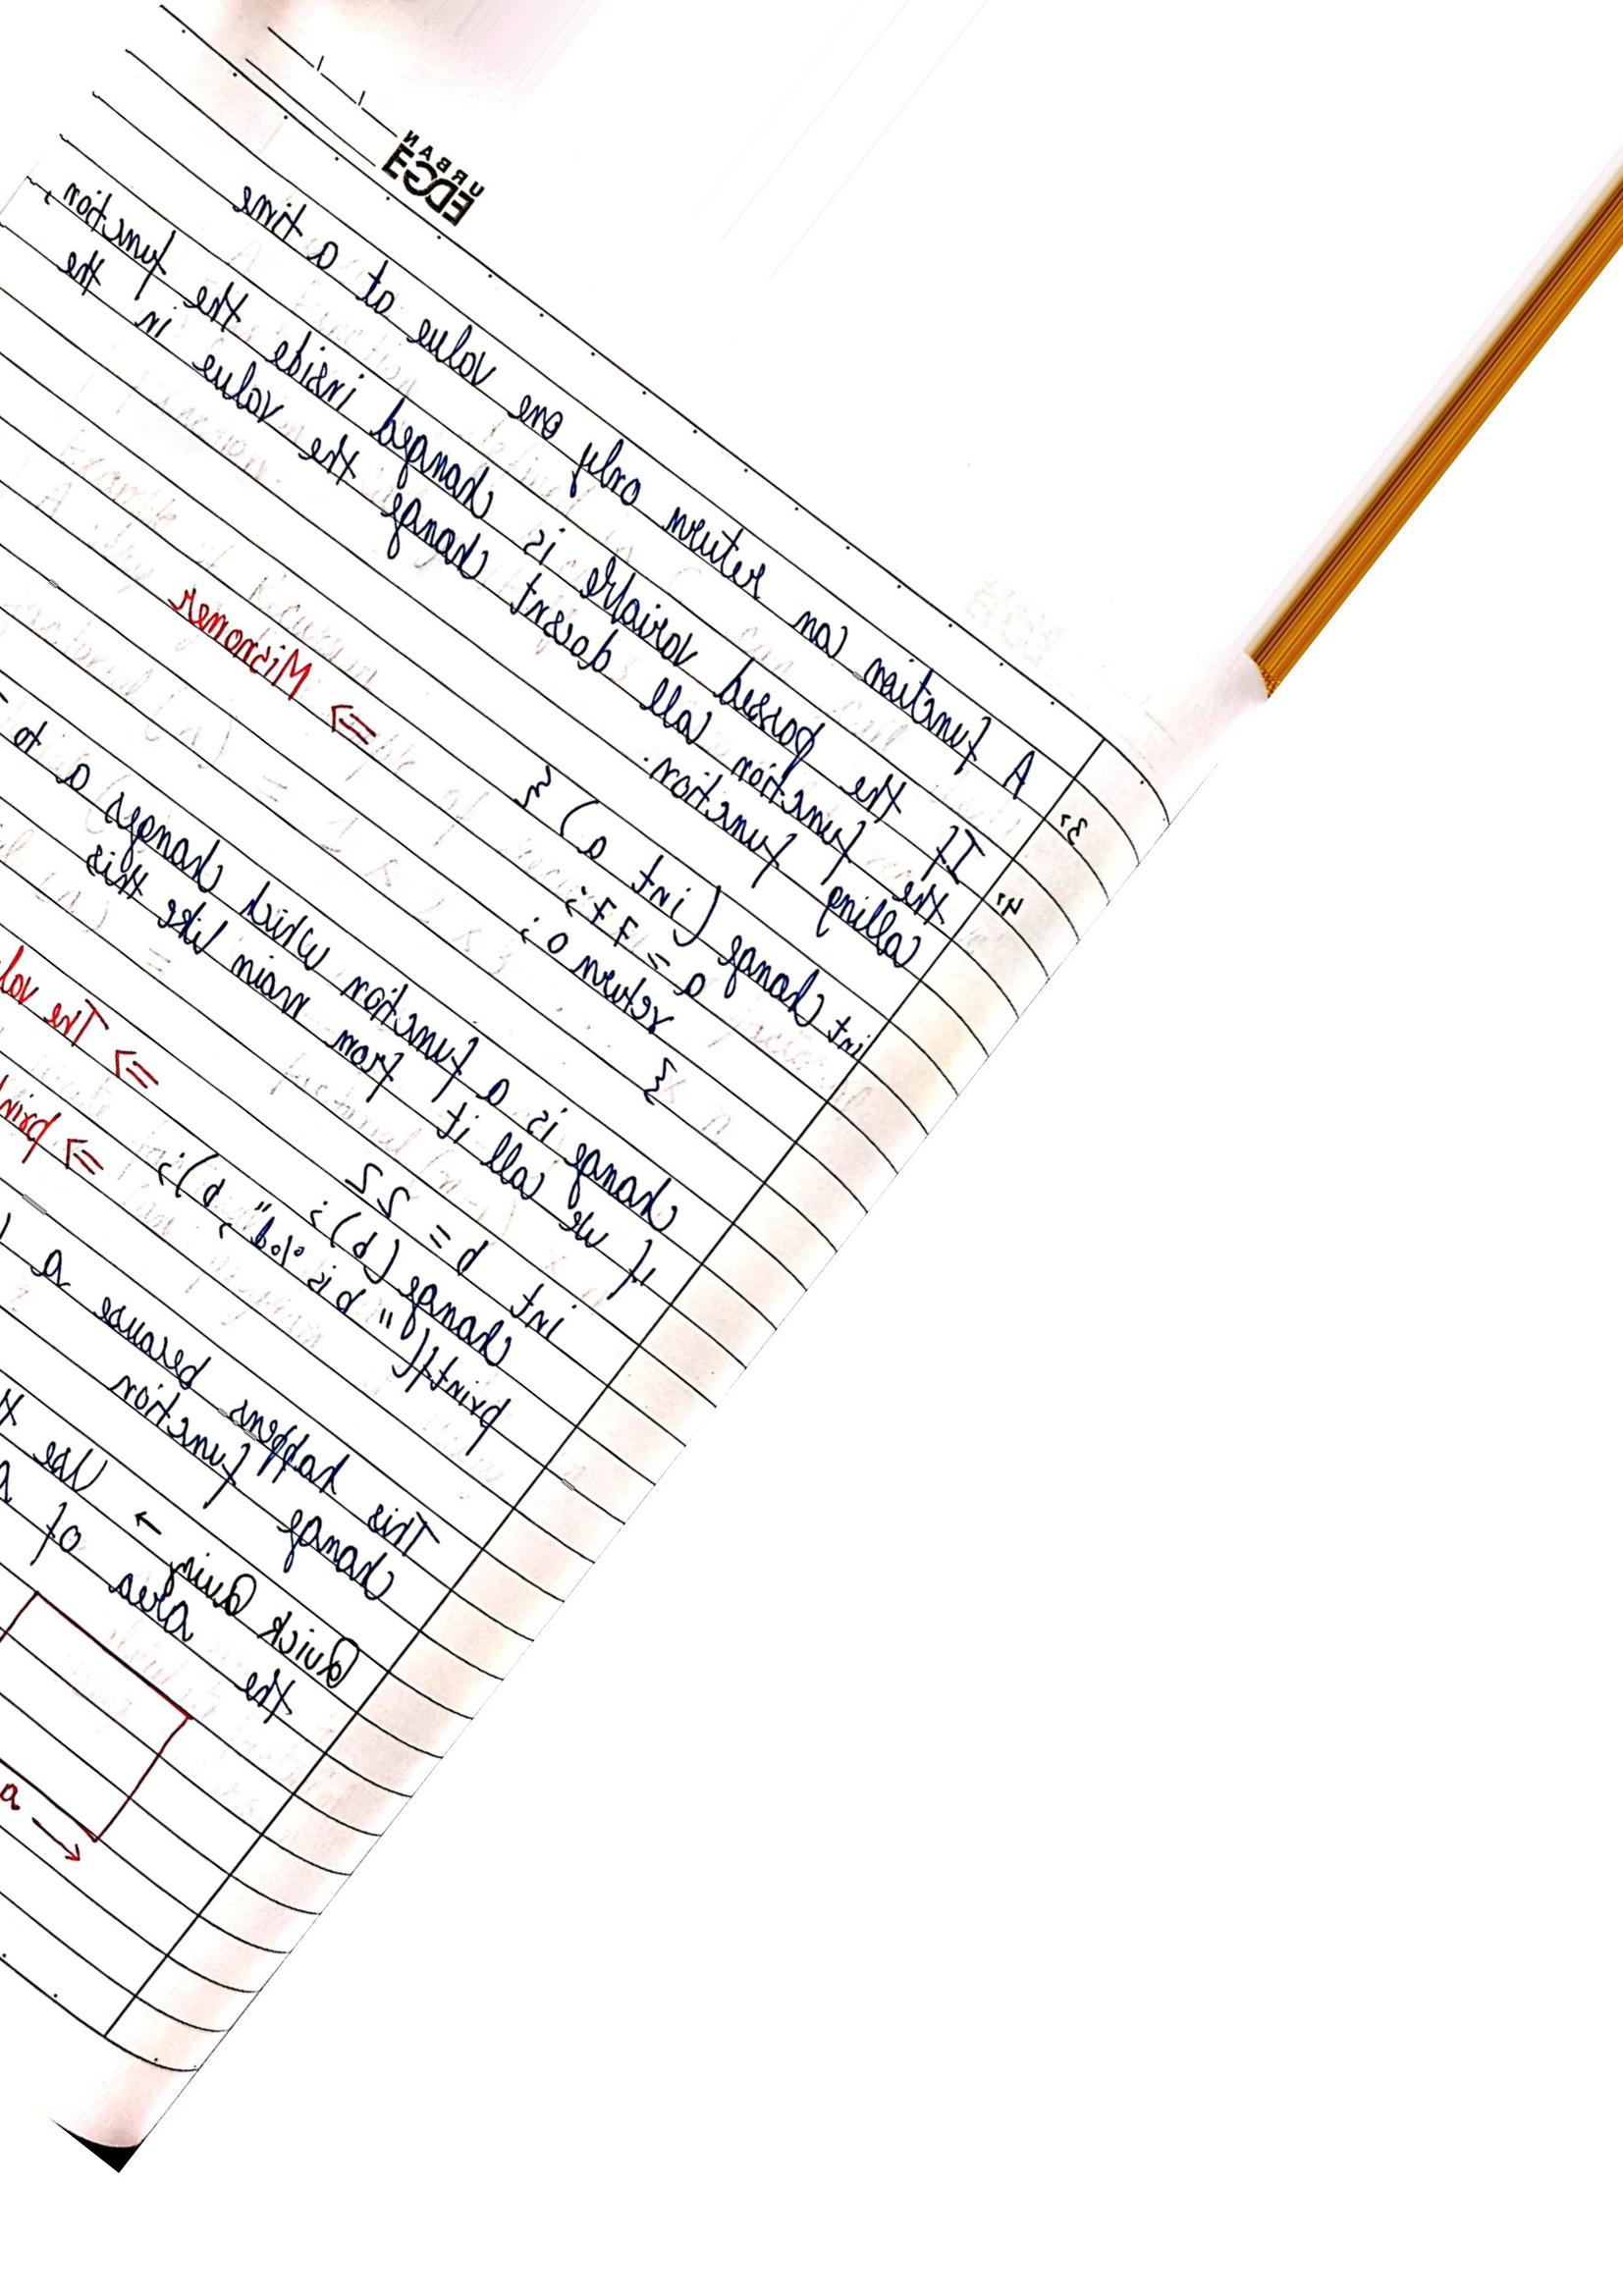 URBAN
EDGE
3, A function can return only one value at a time
4, If the passed variable is changed inside the function,
the function call doesn't change the value in the
calling function.
int change (int a) {
a = 77; => Misnomer
return 0;
}
change is a function which changes a to
if we call it from main like this
int b = 22
change (b); => The
printf(" b is %d", b);
This happens because a
change function
Quick Quiz → Use
the Area of
a